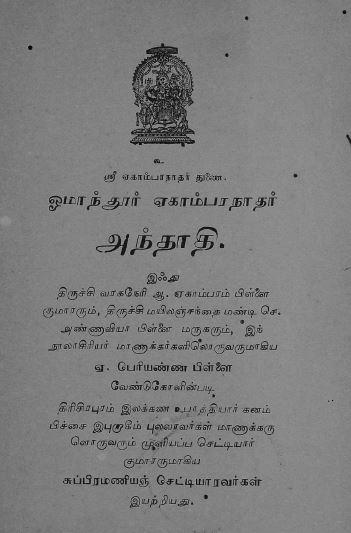 உ
ஸ்ரீ ஏகாம்பரநாதர் துணை.
ஓமாந்தூர் ஏகாம்பரநாதர்
அந்தாதி.
இஃது
திருச்சி வரகனேரி ஆ. ஏகாம்பரம் பிள்ளை
குமாரரும், திருச்சி மயிலஞ்சந்தை மண்டி செ.
அண்ணாவியா பிள்ளை மருகரும், இந்
நூலாசிரியர் மாணாக்கர்களிலொருவருமாகிய
ஏ. பெரியண்ண பிள்ளை
வேண்டுகோளின்படி
திரிசிரபுரம் இலக்கண உபாத்தியார் கனம்
பிச்சை இபுறாகீம் புலவரவர்கள் மாணாக்கரு
ளொருவரும் முனியப்ப செட்டியார்
குமாரருமாகிய
சுப்பிரமணியஞ் செட்டியாரவர்கள்
இயற்றியது.